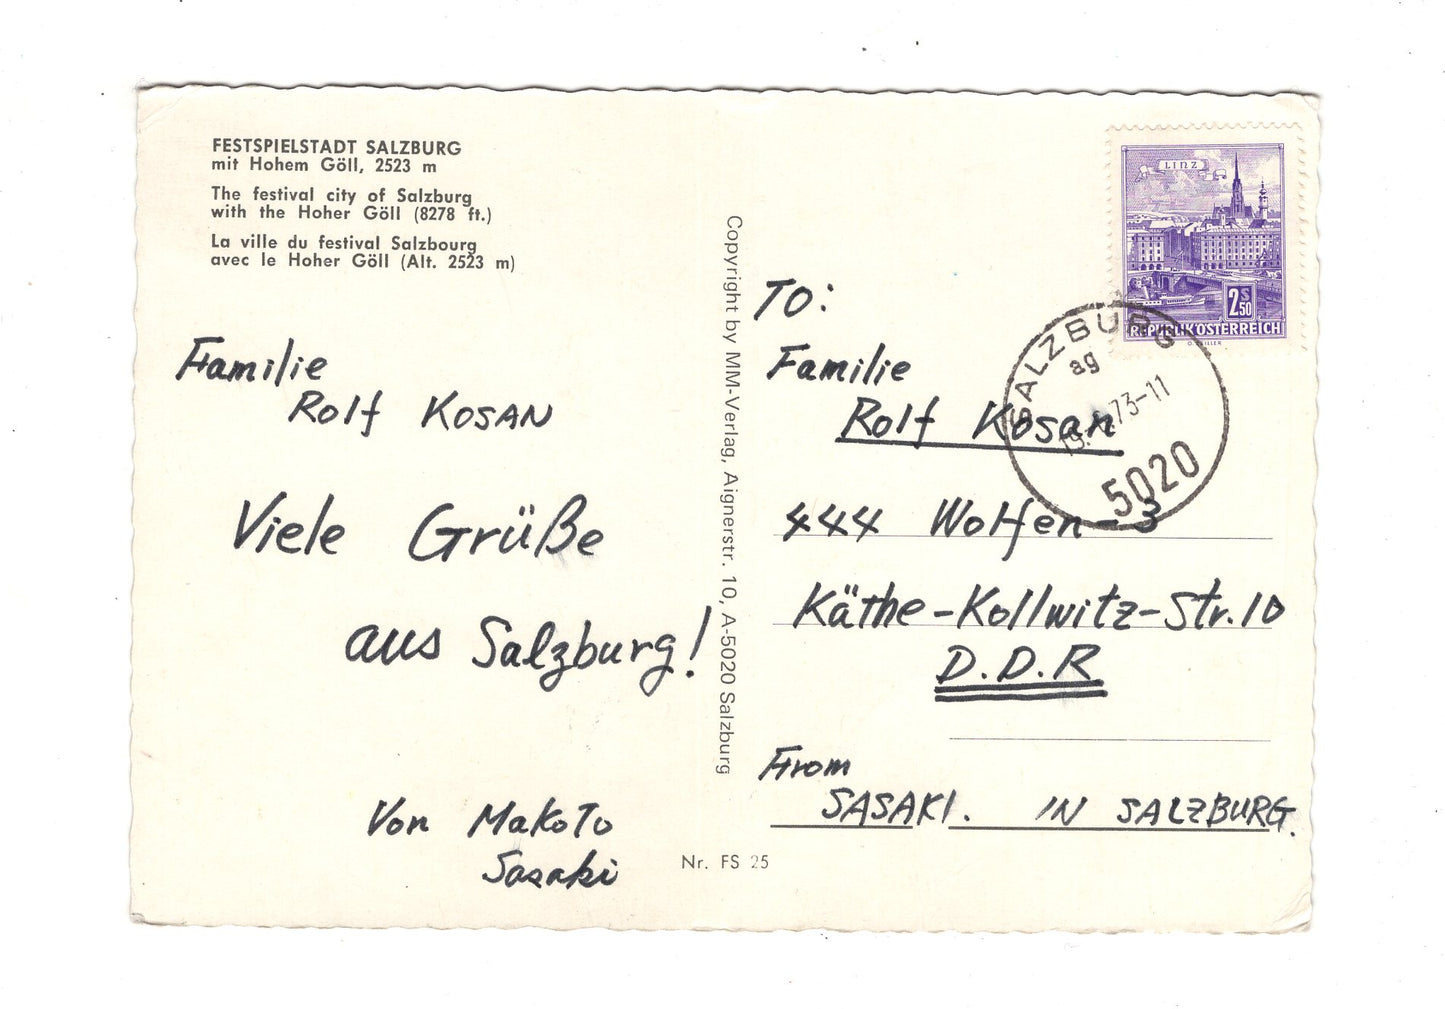 FESTSPIELSTADT SALZBURG
mit Hohem Göll, 2523 m
The festival city of Salzburg
with the Hoher Göll (8278 ft.)
La ville du festival Salzbourg
avec le Hoher Göll (Alt. 2523 m)
Familie
Rolf KOSAN
Viele Grüße
aus Salzburg!
Von MaKoTo
Sasaki
Nr. FS 25
Copyright by MM-Verlag, Aignerstr. 10, A-5020 Salzburg
LINZ
2S50
REPUBLIK ÖSTERREICH
SALZBURG
ag
73-11
5020
TO:
Familie
Rolf Kosan
444 Wolfen-3
Käthe-Kollwitz-Str.10
D.D.R
From
SASAKI. IN SALZBURG.